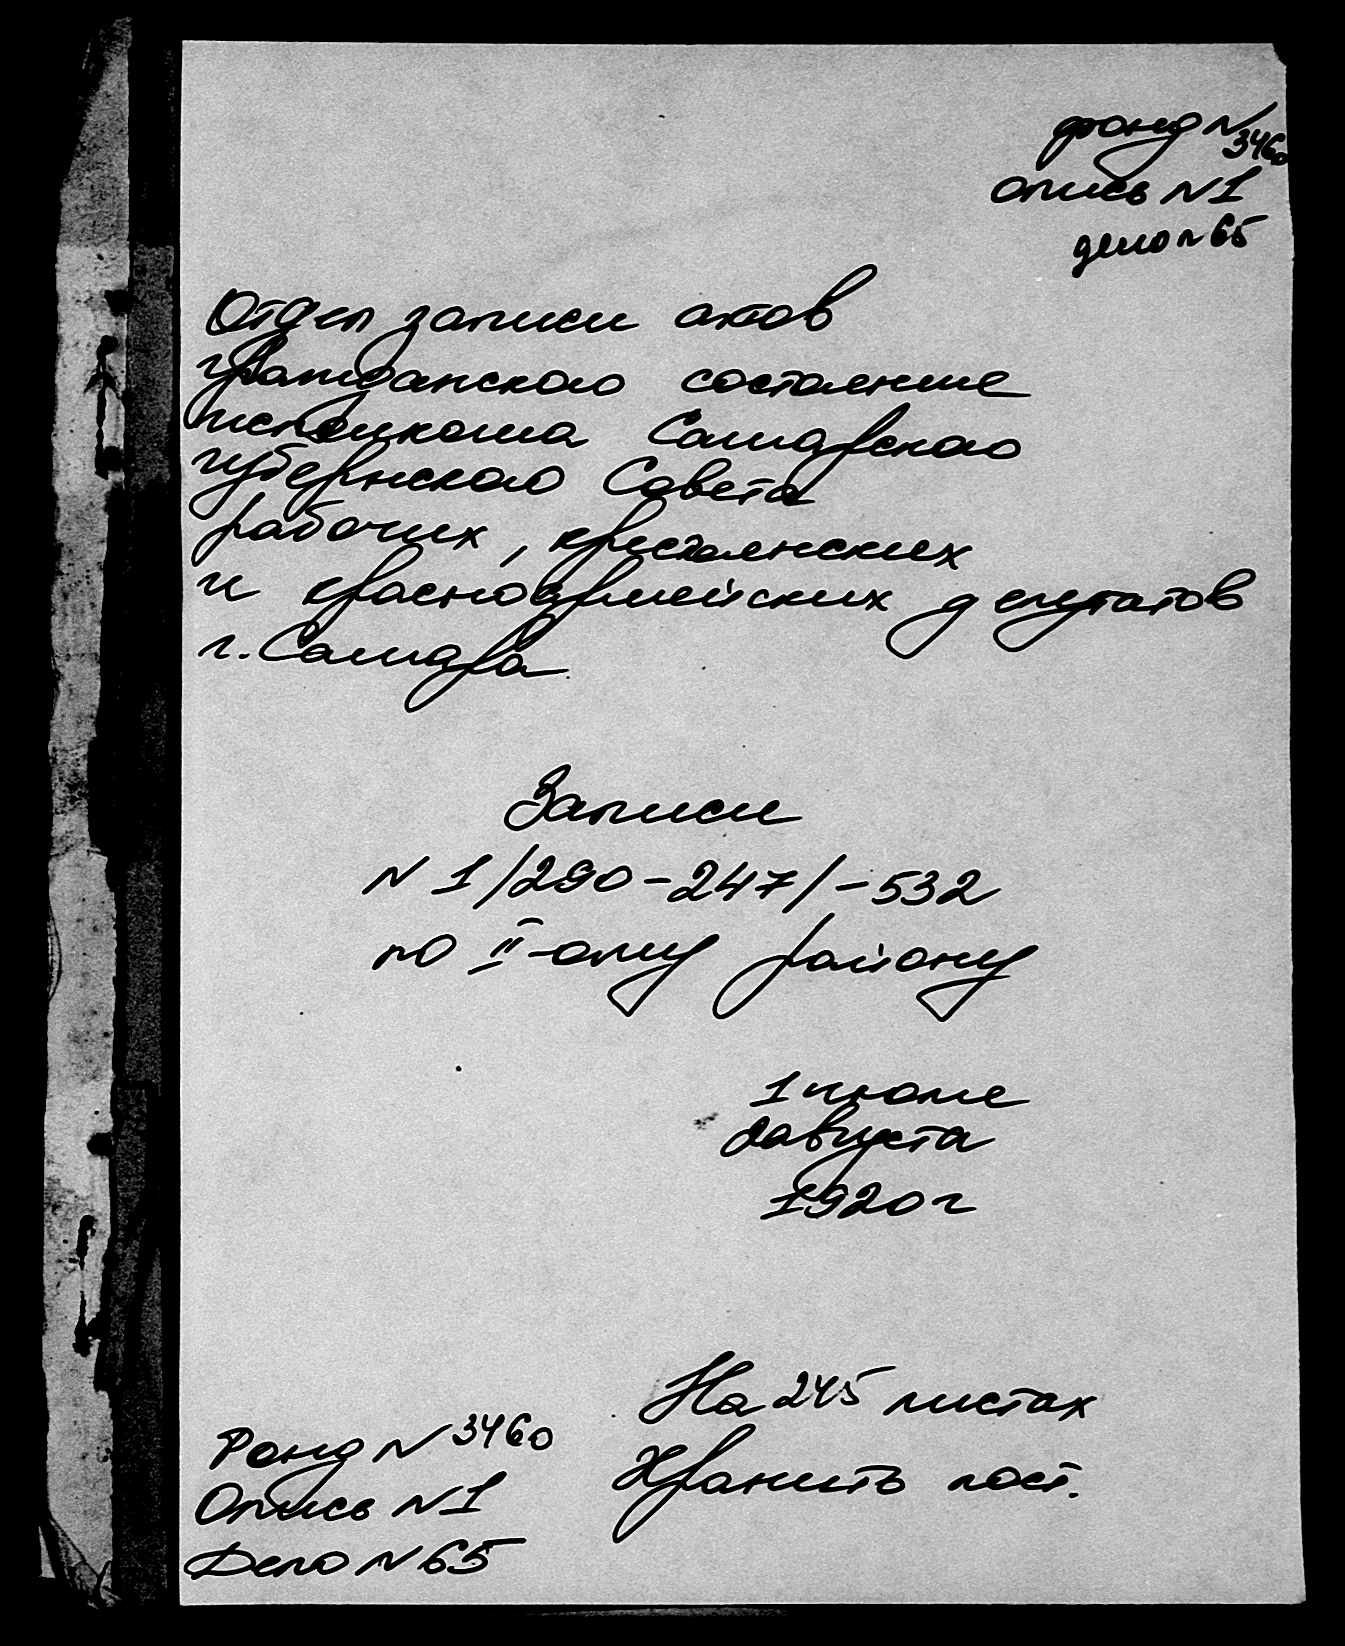 фонд N 3460
опись N 1
дело N 65
Отдел записи актов
гражданского состояние
исполкома Самарского
губернского Совета
рабочих, крестьянских
и красноармейских депутатов
г. Самара.
Записи
N 1/290-247/-532
по II-ому району
1 июле
августа
1920 г
На 245 листах
Хранить пост.
Фонд N 3460
Опись N 1
Дело N 65